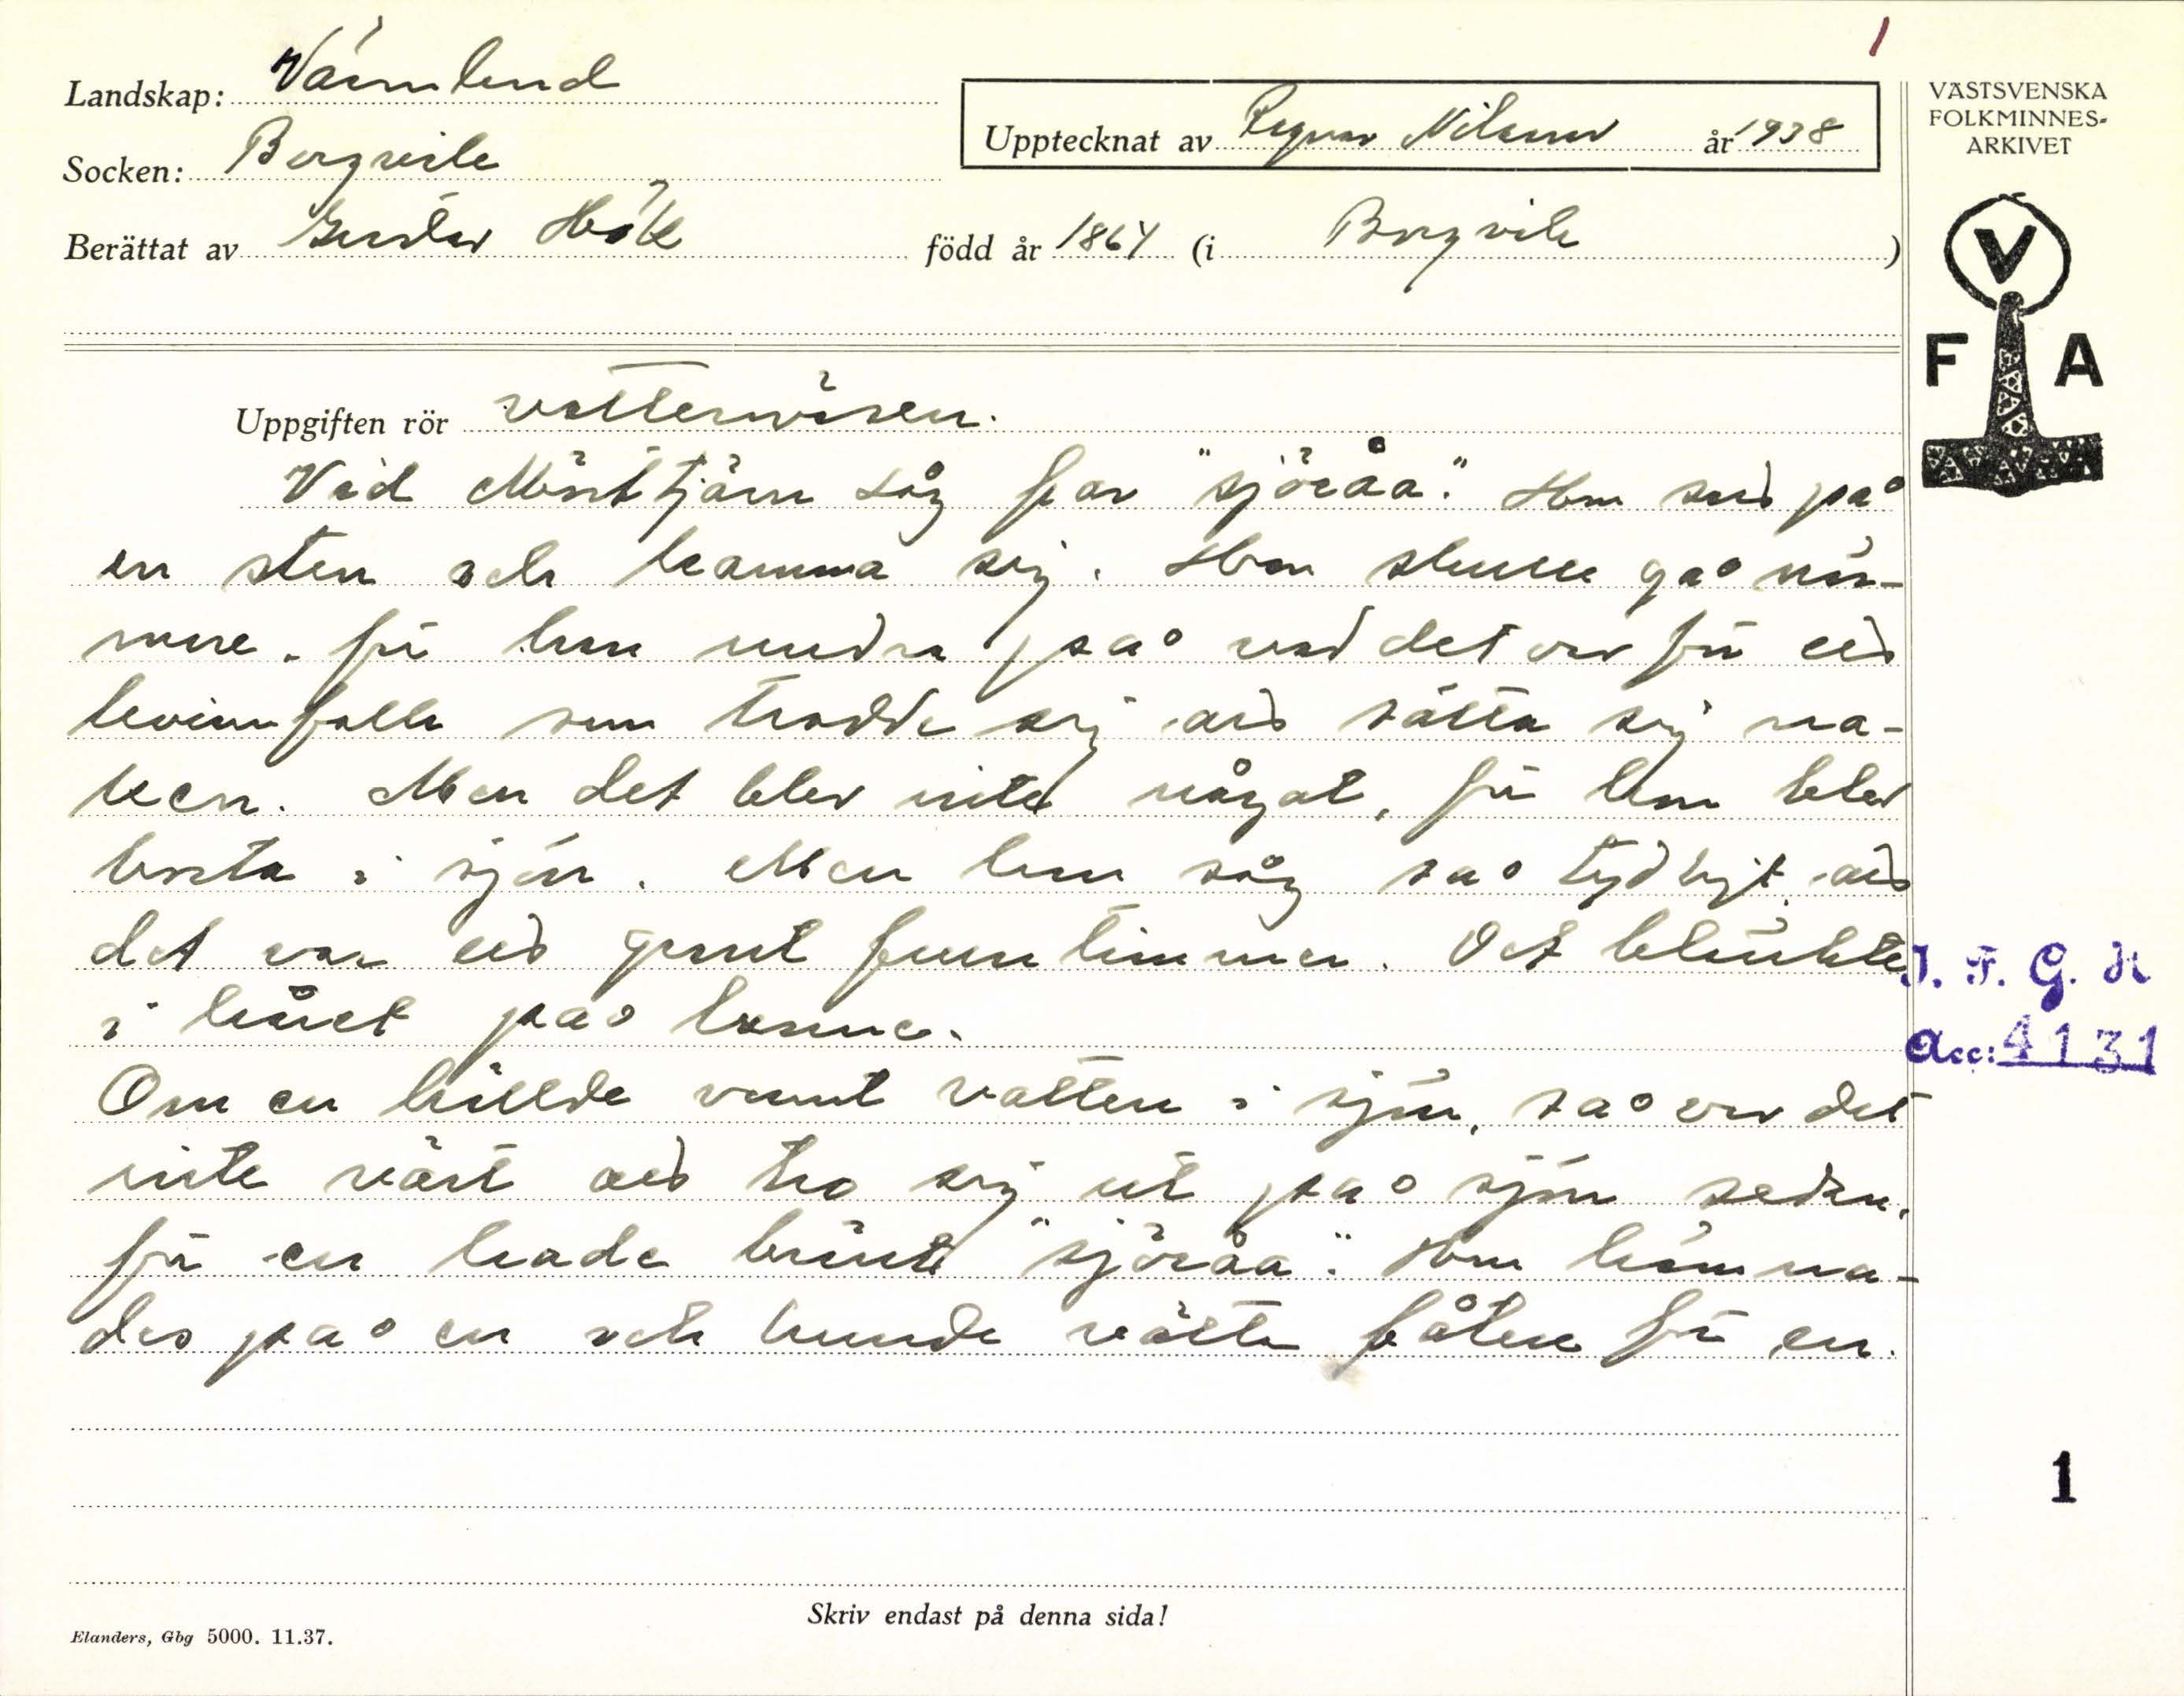 1
Landskap: Värmland
Upptecknat av Ragnar Nilsson år 1938
VÄSTSVENSKA
FOLKMINNES-
ARKIVET
Socken: Borgvik
Berättat av Gustav Höök född år 1864 (i Borgvik)
V
F A
Uppgiften rör vattenväsen.
Vid Mörttjärn såg far "sjöråa". Hon satt på
en sten och kamma sig. Han skulle gå när-
mare, för han undra på vad det var för ett
kvinnfolk som trodde sig att sätta sig na-
ken. Men det blev inte något, för hon blev
borta i sjön. Men han såg så tydligt att
det var ett grant fruntimmer. Det blänkte
i håret på henne.
I. F. G. H
Acc: 4131
Om en hällde varmt vatten i sjön, så var det
inte värt att tro sig ut på sjön sedan,
för en hade bränt "sjöråa". Hon hämna-
des på en och kunde välta båten för en.
1
Skriv endast på denna sida!
Elanders, Gbg 5000. 11.37.